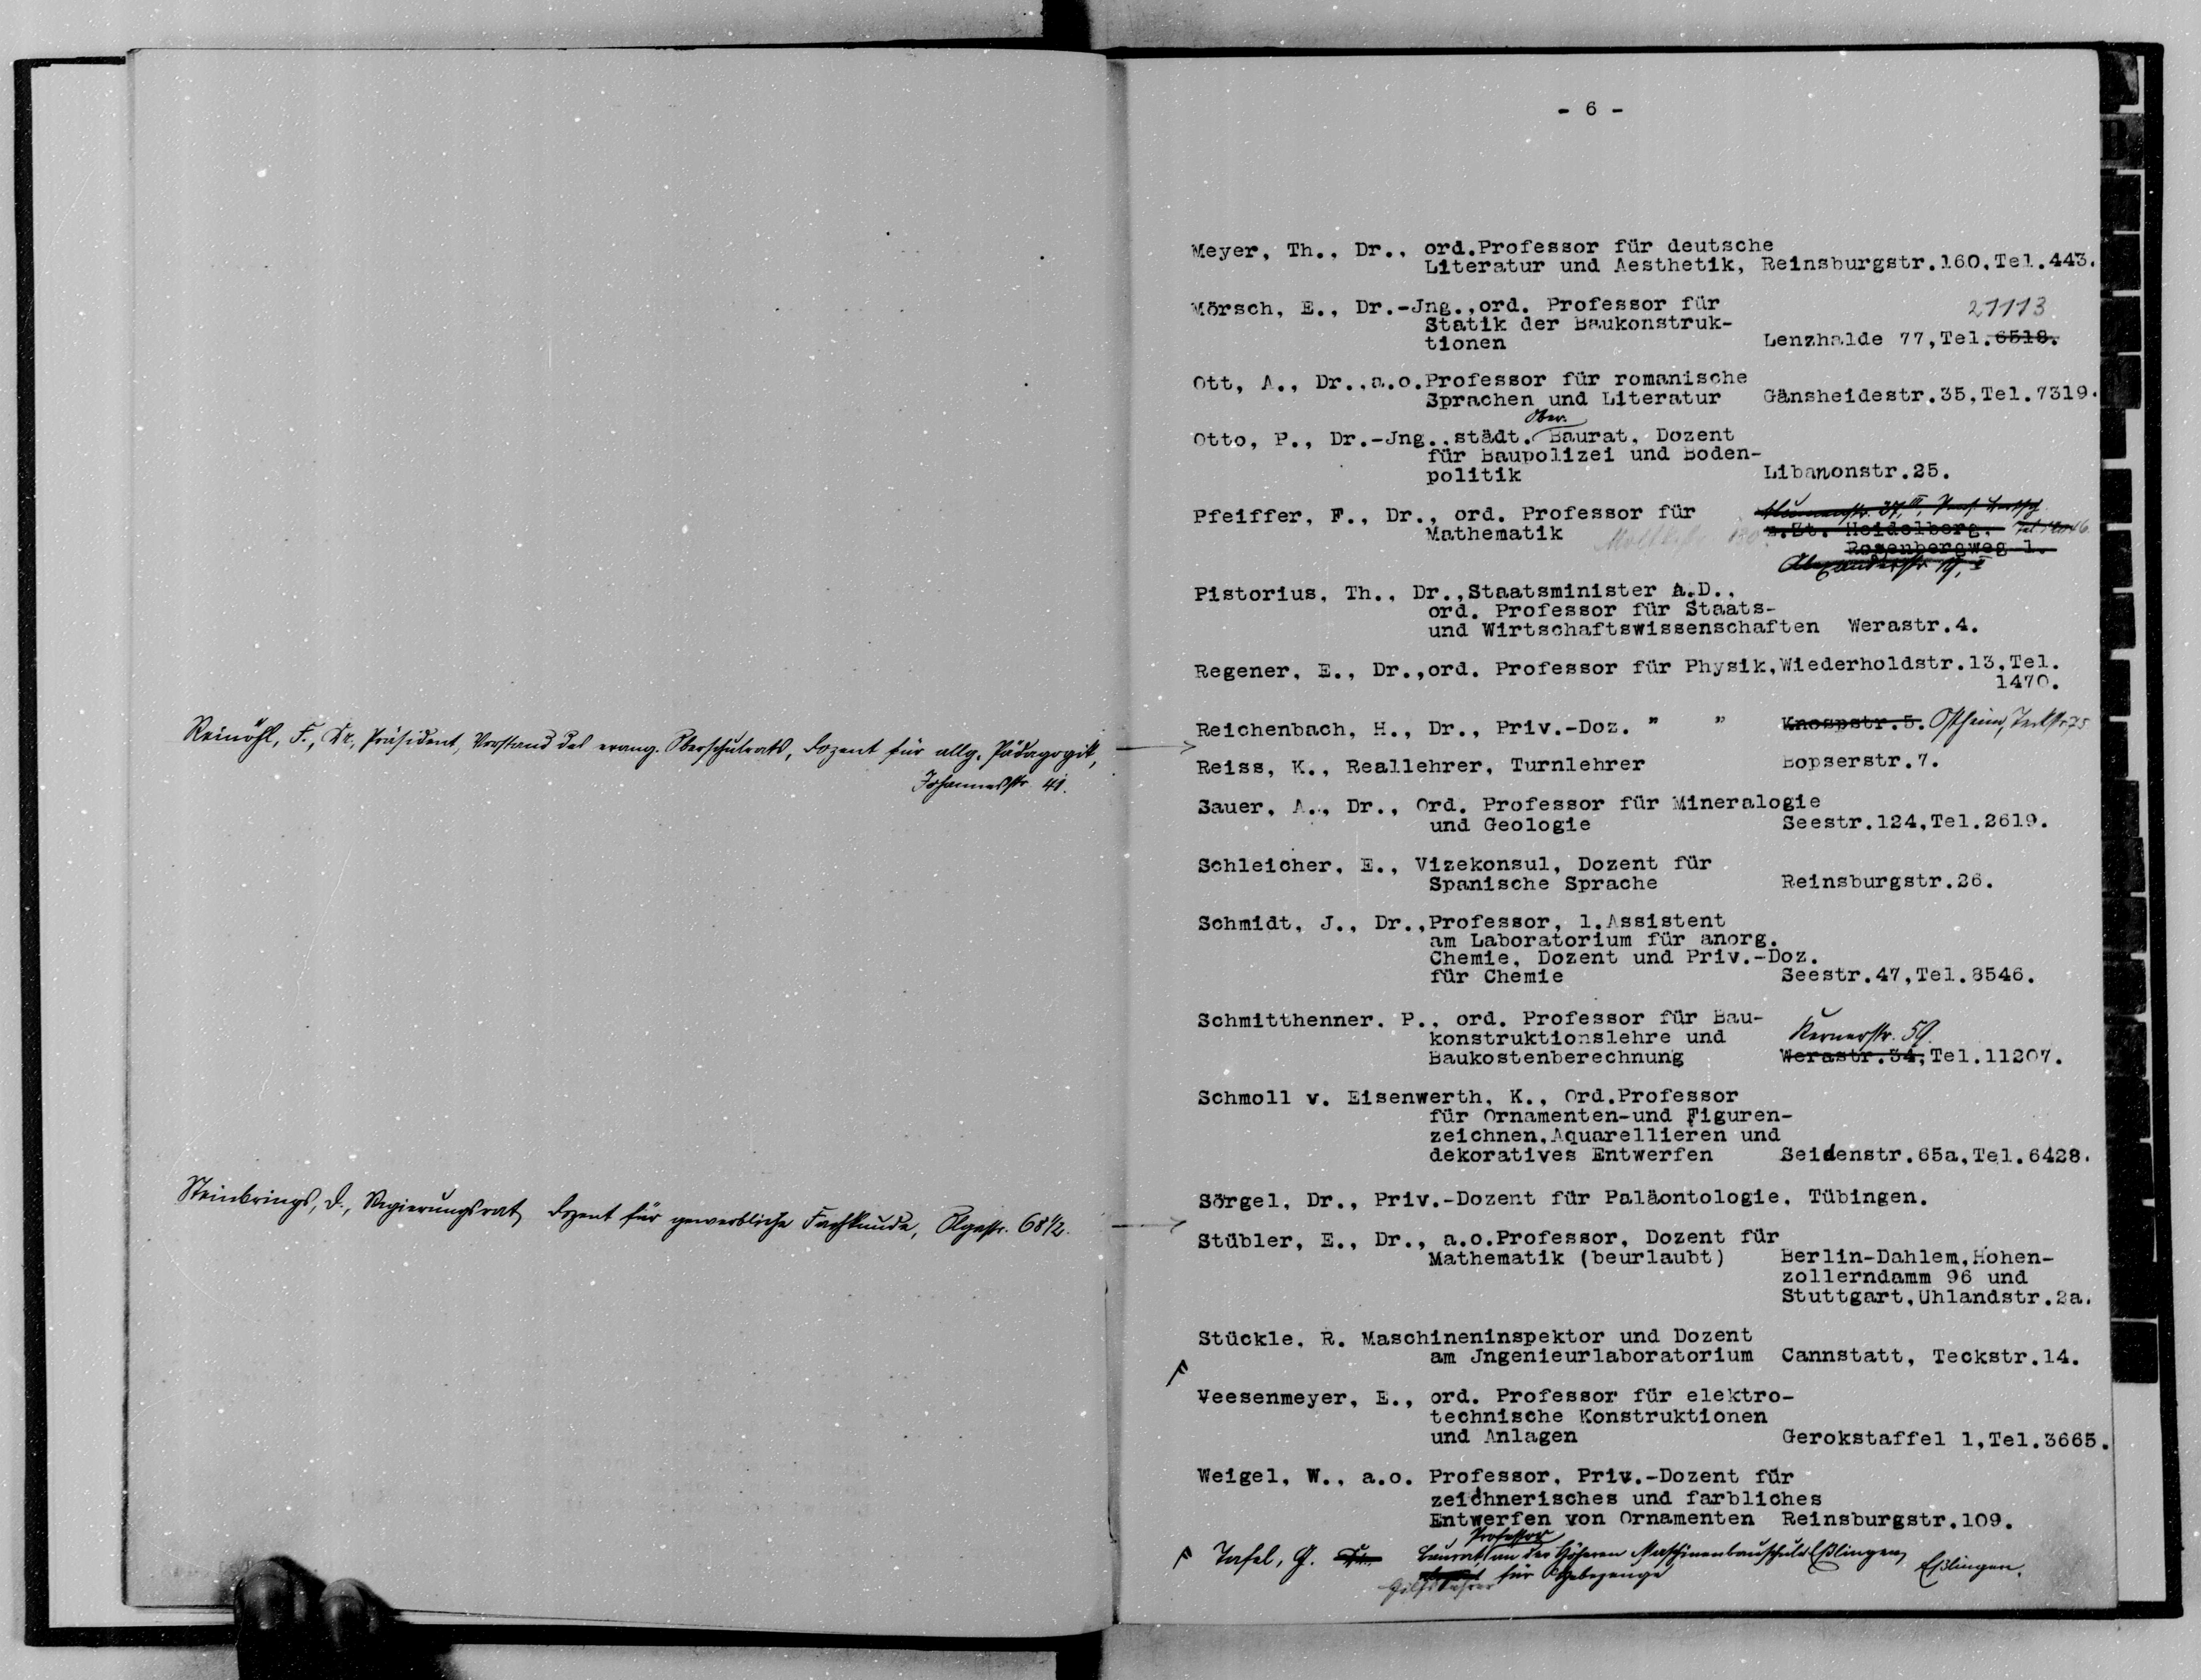 Reinöhl, F., Dr., Präsident, Vorstand des evang. Oberschulrats, Dozent für allg. Pädagogik,
Johannesstr. 41.
Steinbrings, D., Regierungsrat, Dozent für gewerbliche Fachkunde, Olgastr. 68 1/2.
- 6 -
Meyer, Th., Dr., ord.Professor für deutsche
Literatur und Aesthetik, Reinsburgstr.160,Tel.443.
Mörsch, E., Dr.-Jng.,ord. Professor für 21113
Statik der Baukonstruk-
tionen Lenzhalde 77,Tel.6518.
Ott, A., Dr.,a.o.Professor für romanische
Sprachen und Literatur Gänsheidestr.35,Tel.7319.
Ober
Otto, P., Dr.-Jng.,städt. Baurat, Dozent
für Baupolizei und Boden-
politik Libanonstr.25.
Pfeiffer, F., Dr., ord. Professor für
Mathematik z.Zt. Heidelberg,
Rosenbergweg 1.
Alexanderstr.
Pistorius, Th., Dr.,Staatsminister a.D.,
ord. Professor für Staats-
und Wirtschaftswissenschaften Werastr.4.
Regener, E., Dr.,ord. Professor für Physik,Wiederholdstr.13,Tel.
1470.
Reichenbach, H., Dr., Priv.-Doz. " " Knospstr.5. Ostheim, Teckstr. 75
Reiss, K., Reallehrer, Turnlehrer Bopserstr.7.
Sauer, A., Dr., Ord. Professor für Mineralogie
und Geologie Seestr.124,Tel.2619.
Schleicher, E., Vizekonsul, Dozent für
Spanische Sprache Reinsburgstr.26.
Schmidt, J., Dr.,Professor, 1.Assistent
am Laboratorium für anorg.
Chemie, Dozent und Priv.-Doz.
für Chemie Seestr.47,Tel.8546.
Schmitthenner, P., ord. Professor für Bau-
konstruktionslehre und Kernerstr. 59.
Baukostenberechnung Werastr.34,Tel.11207.
Schmoll v. Eisenwerth, K., Ord.Professor
für Ornamenten-und Figuren-
zeichnen,Aquarellieren und
dekoratives Entwerfen Seidenstr.65a,Tel.6428.
Sörgel, Dr., Priv.-Dozent für Paläontologie, Tübingen.
Stübler, E., Dr., a.o.Professor, Dozent für
Mathematik (beurlaubt) Berlin-Dahlem,Hohen-
zollerndamm 96 und
Stuttgart,Uhlandstr.2a.
Stückle, R. Maschineninspektor und Dozent
am Jngenieurlaboratorium Cannstatt, Teckstr.14.
Veesenmeyer, E., ord. Professor für elektro-
technische Konstruktionen
und Anlagen Gerokstaffel 1,Tel.3665.
Weigel, W., a.o. Professor, Priv.-Dozent für
zeichnerisches und farbliches
Entwerfen von Ornamenten Reinsburgstr.109.
Professor
Tafel, G. Baurat an der Höheren Maschinenbauschule Eßlingen, Eßlingen.
Hilfslehrer für Hebezeuge